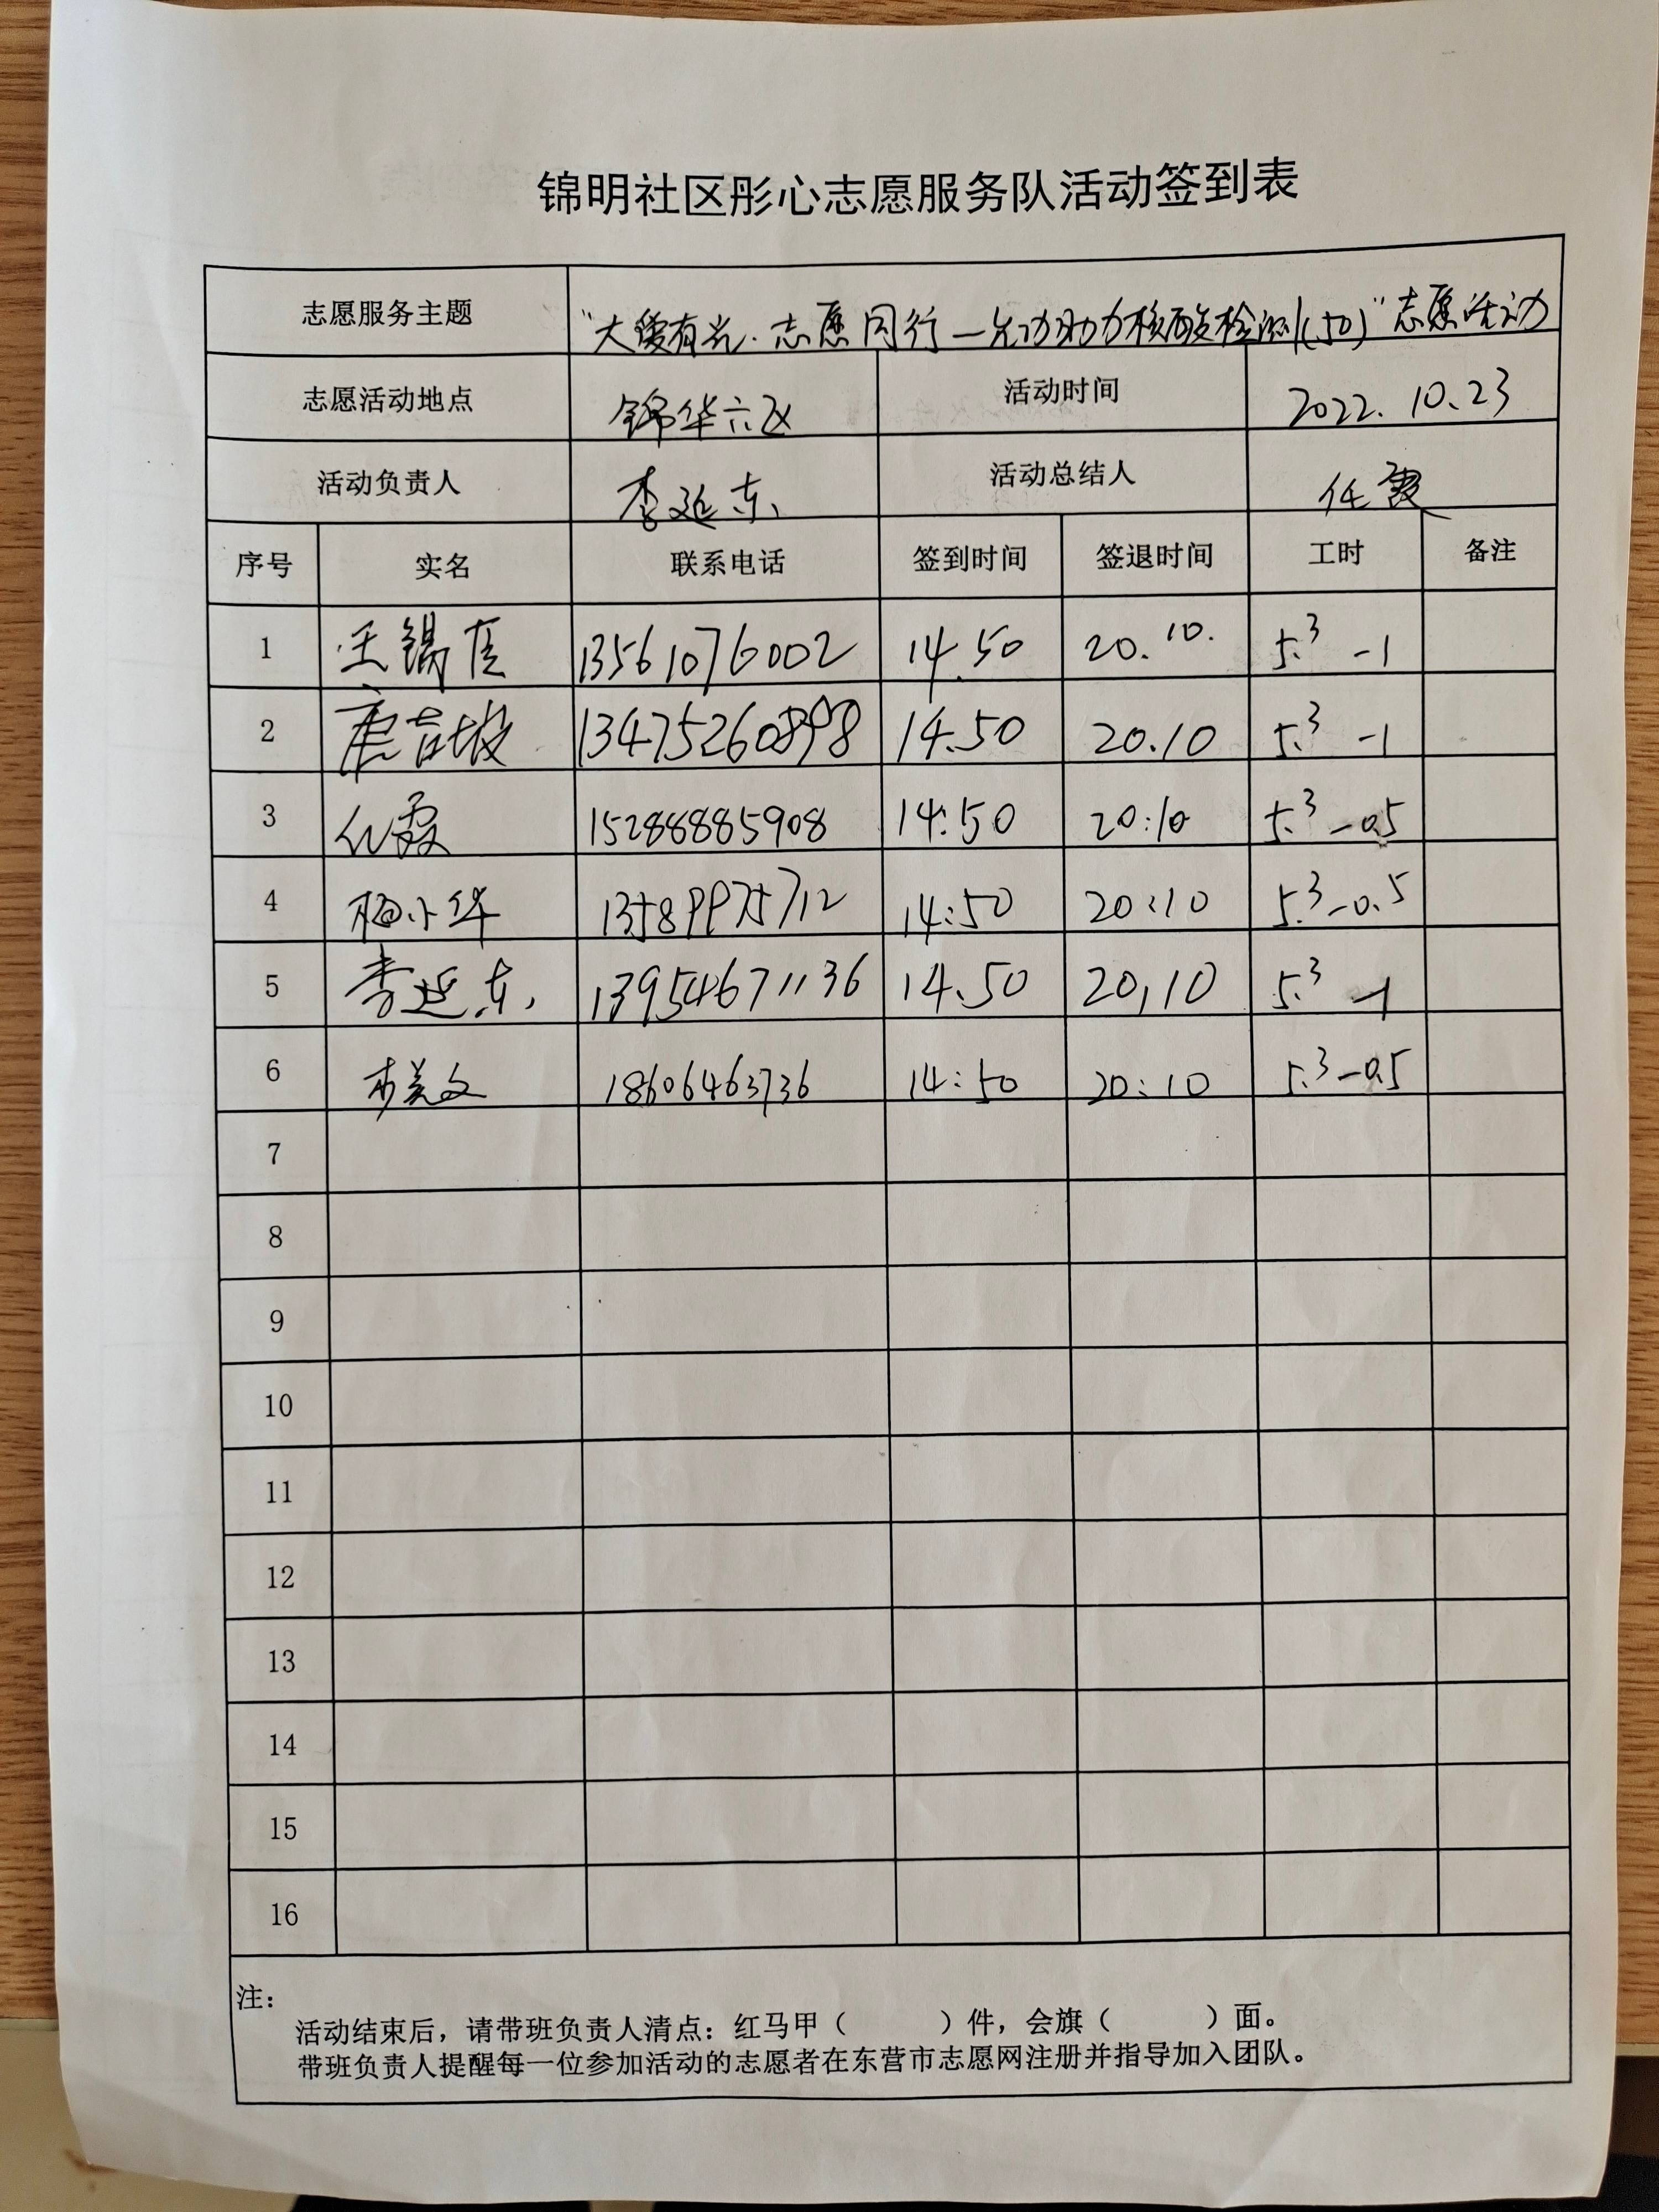 锦明社区彤心志愿服务队活动签到表
志愿服务主题 “大爱有光.志愿同行—全力助力核酸检测(50)”志愿活动
志愿活动地点 锦华六区 活动时间 2022.10.23
活动负责人 李延东 活动总结人 任霞
序号 实名 联系电话 签到时间 签退时间 工时 备注
1 王锡 13561076002 14.50 20.10. 5.3 -1
2 唐吉坡 13475260898 14.50 20.10 5.3 -1
3 任霞 15288885908 14:50 20:10 5.3 -0.5
4 梅小华 13589975712 14:50 20:10 5.3-0.5
5 李延东 13954671136 14.50 20,10 5.3 -1
6 18606463736 14:50 20:10 5.3-0.5
7
8
9
10
11
12
13
14
15
16
注：
活动结束后，请带班负责人清点：红马甲（ ）件，会旗（ ）面。
带班负责人提醒每一位参加活动的志愿者在东营市志愿网注册并指导加入团队。